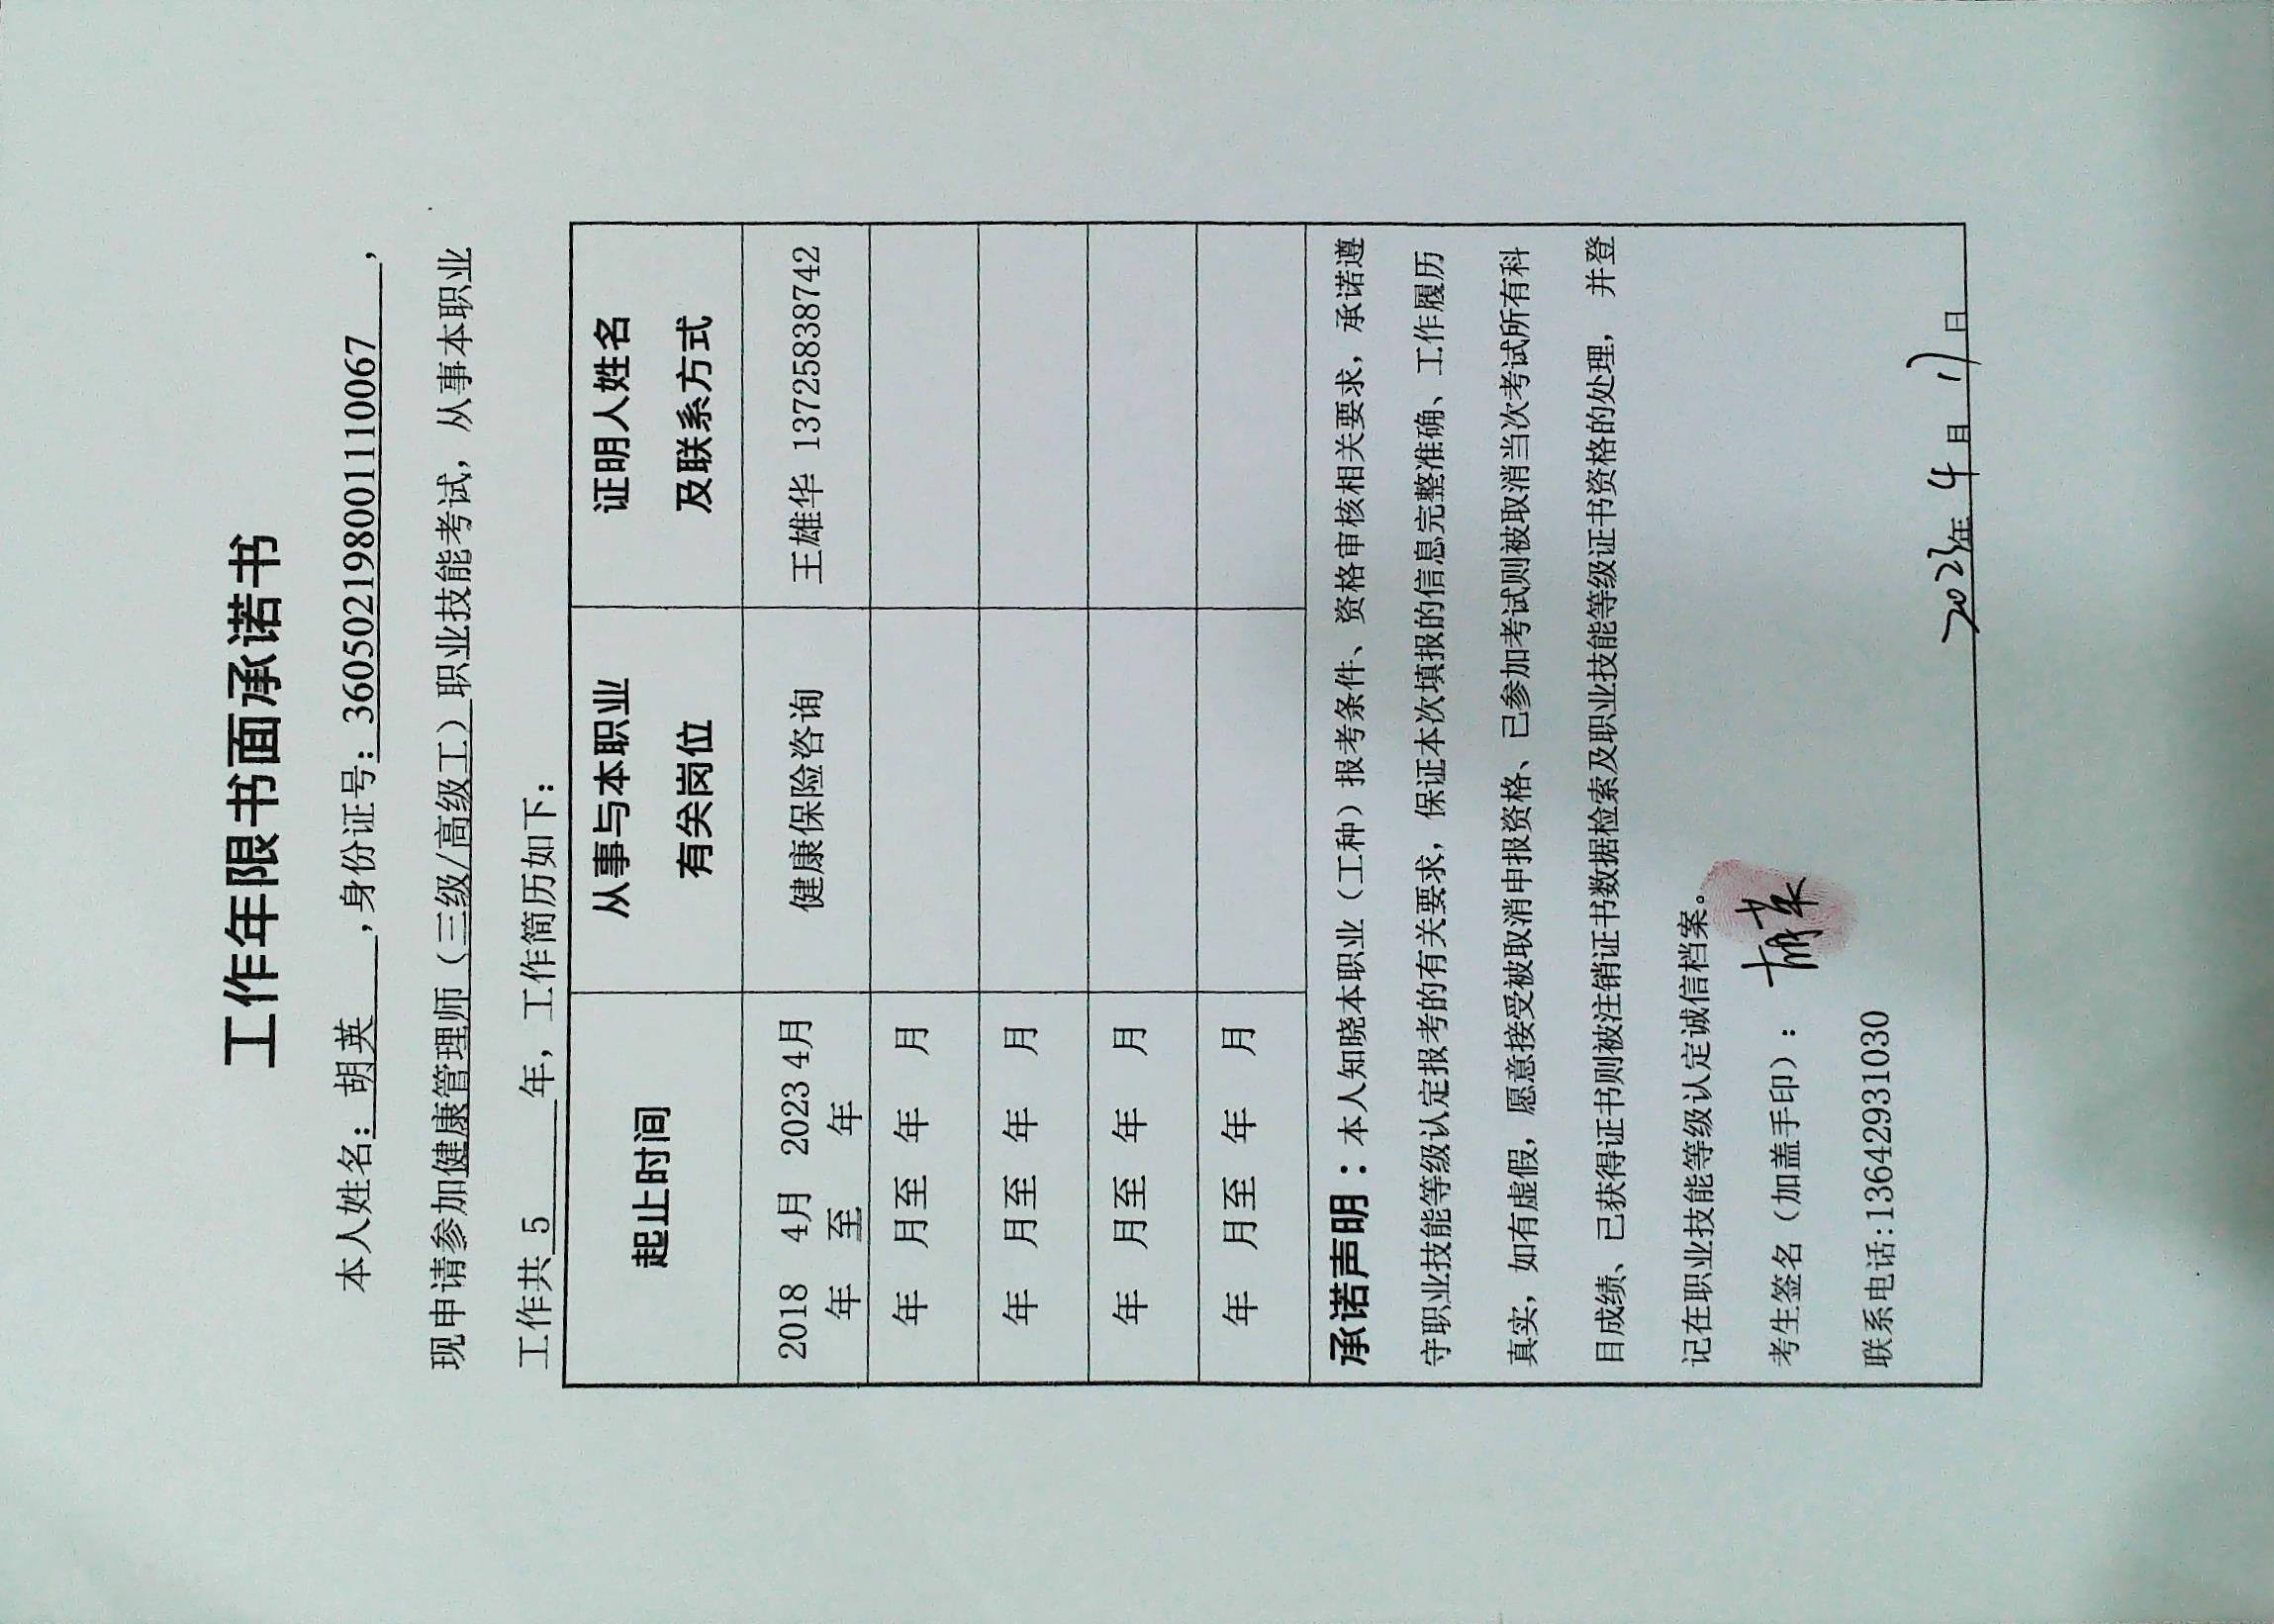 工作年限书面承诺书
本人姓名：胡英，身份证号：360502198001110067，
现申请参加健康管理师（三级/高级工）职业技能考试，从事本职业
工作共 5 年，工作简历如下：
起止时间 从事与本职业有关岗位 证明人姓名及联系方式
2018年 4月至 2023年 4月 健康保险咨询 王雄华 13725838742
年 月至 年 月
年 月至 年 月
年 月至 年 月
年 月至 年 月
承诺声明：本人知晓本职业（工种）报考条件、资格审核相关要求，承诺遵
守职业技能等级认定报考的有关要求，保证本次填报的信息完整准确、工作履历
真实，如有虚假，愿意接受被取消申报资格、已参加考试则被取消当次考试所有科
目成绩、已获得证书则被注销证书数据检索及职业技能等级证书资格的处理，并登
记在职业技能等级认定诚信档案。
考生签名（加盖手印）：胡英
联系电话:13642931030
2023年 4月 17日